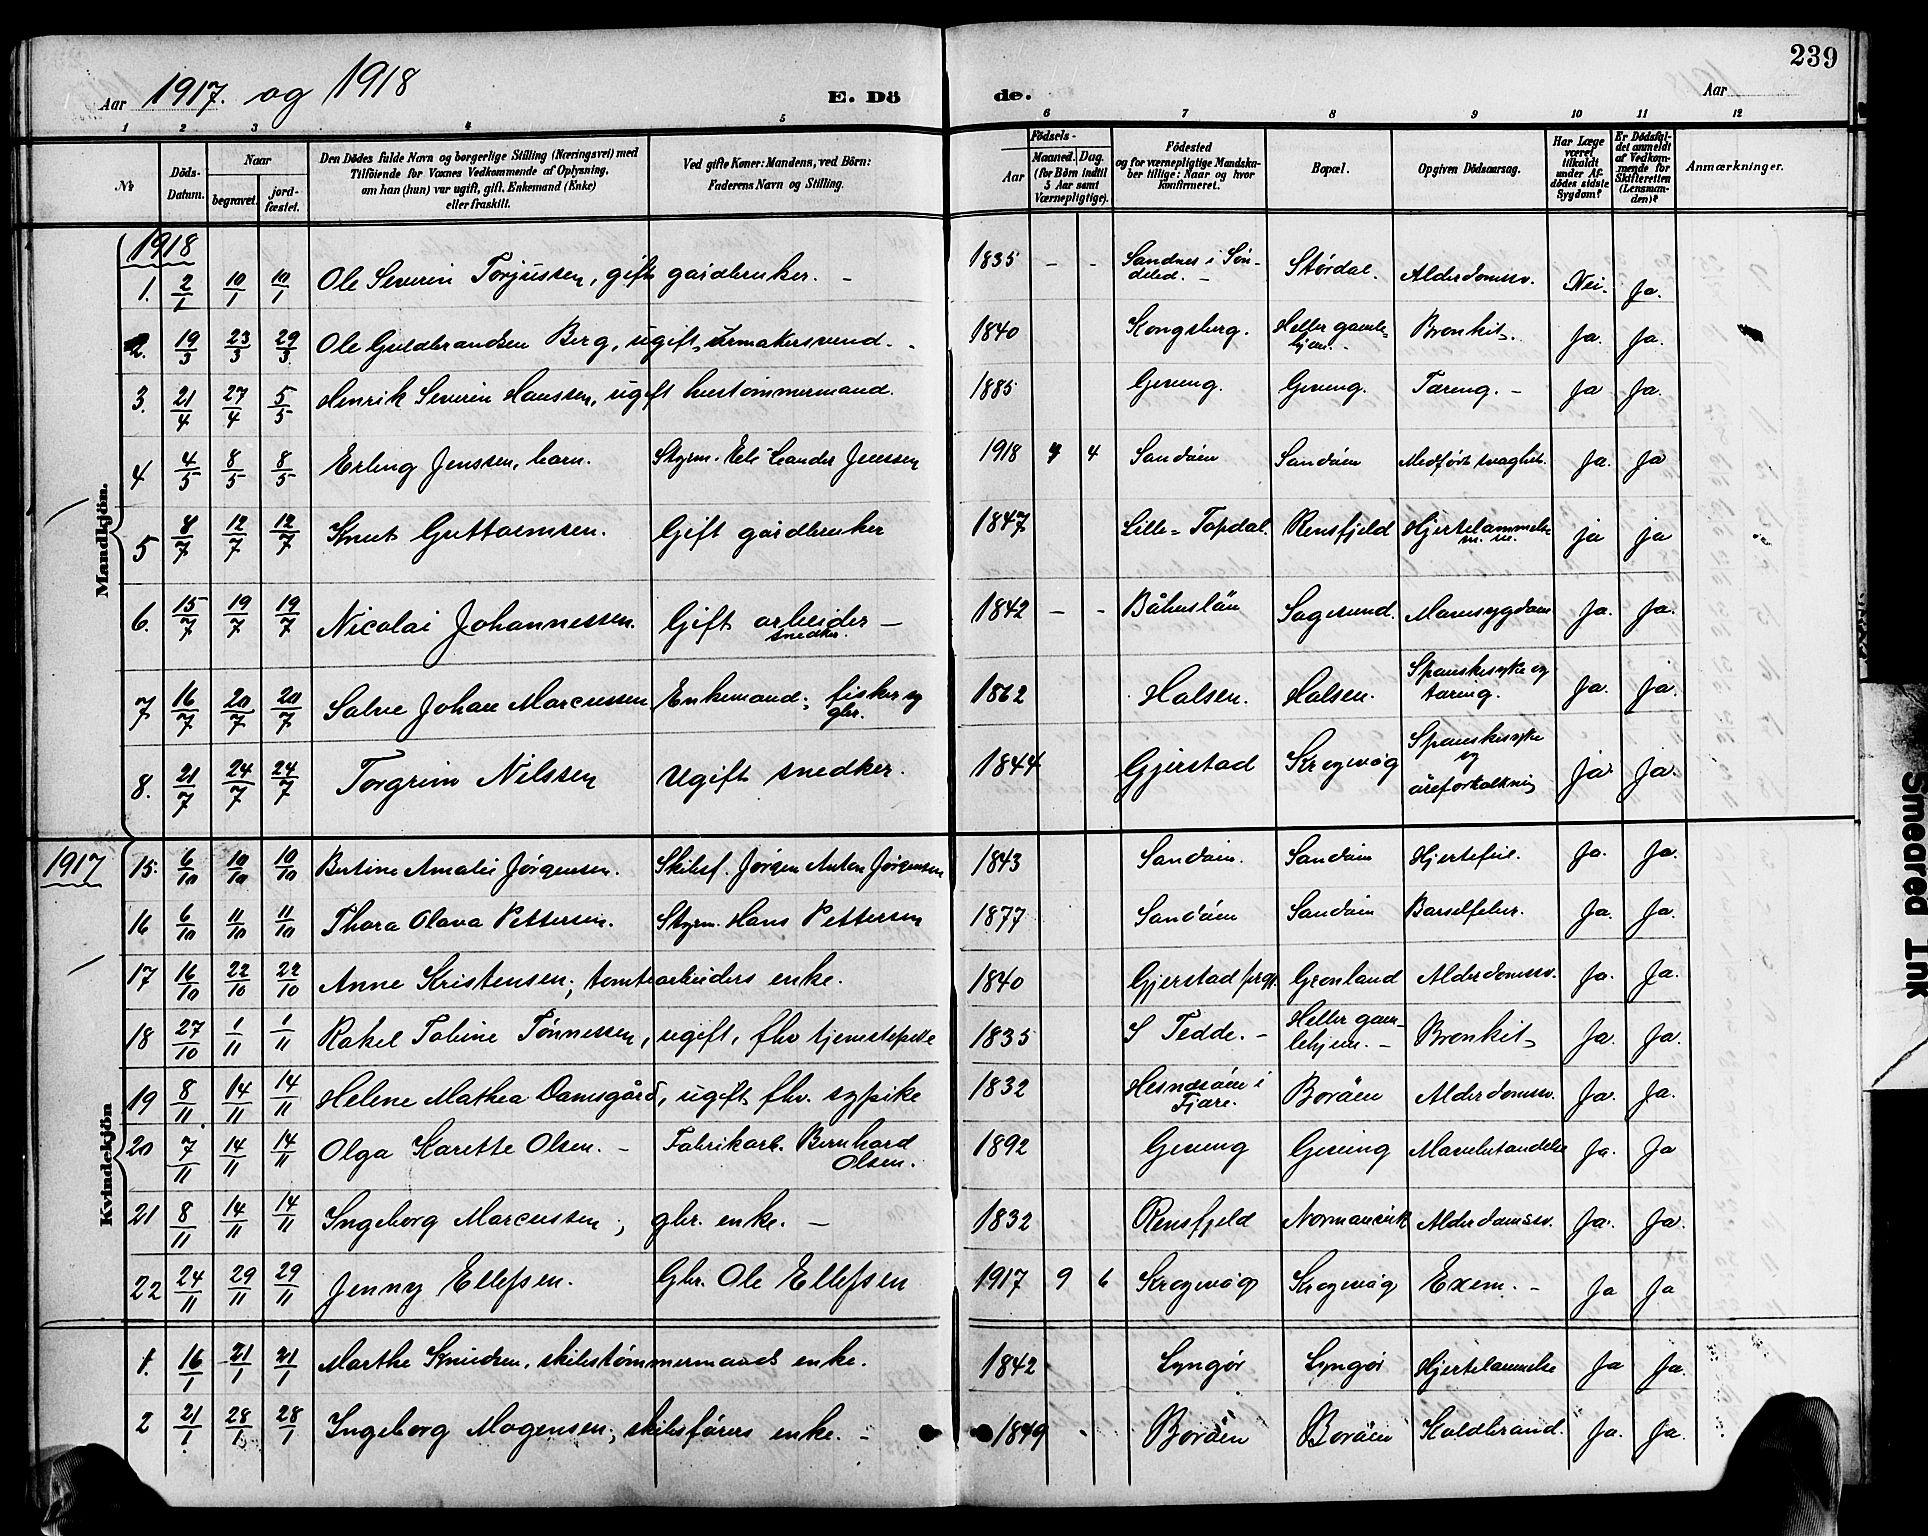 239
Aar 1917. og 1918 E. Dö de. Aar
1 2 3 4 5 6 7 8 9 10 11 12
№ Döds-Datum. Naar begravet. jordfæstet. Den Dödes fulde Navn og borgerlige Stilling (Næringsvei) med Tilföiende for Voxnes Vedkommende af Oplysning, om han (hun) var ugift, gift, Enkemand (Enke) eller fraskilt. Ved gifte Koner: Mandens, ved Börn: Faderens Navn og Stilling. Födsels- Aar Maaned. Dag. (for Börn indtil 5 Aar samt Værnepligtige). Födested og for værnepligtige Mandskaber tillige: Naar og hvor konfirmeret. Bopæl. Opgiven Dödsaarsag. Har Læge været tilkaldt under Afdödes sidste Sygdom? Er Dödsfaldet anmeldt af Vedkommende for Skifteretten (Lensmanden)? Anmærkninger.
Mandkjön.
1918
1. 2/1 10/1 10/1 Ole Severin Torjussen, gift gaardbruker. – 1835 – – Sandnes i Søndeled. – Størdal. Alderdomssv. Nei. Ja.
2. 19/3 23/3 29/3 Ole Guldbrandsen Berg, ugift urmakersvend. 1840 Kongsberg. Heller gamlehjem. – Bronkit. Ja. Ja.
3. 21/4 27/4 5/5 Henrik Severin Hanssen, ugift hustømmermand. 1885 Geving. Geving. Tæring. – Ja Ja.
4 4/5 8/5 8/5 Erling Jenssen, barn. Styrm. Leander Jenssen 1918 4 Sandøen Sandøen Medfødt svaghet. Ja. Ja
5 8/7 12/7 12/7 Knut Guttormsen. Gift gaardbruker 1847 Lille-Topdal. Rensfjeld Hjertelammelse m. m. ja ja
6. 15/7 19/7 19/7 Nicolai Johannessen. Gift arbeider – snedker. 1842 – – Båhuslän Sagesund. Mavesygdom Ja. Ja.
7 16/7 20/7 20/7 Salve Johan Marcussen Enkemand; fisker og gbr. 1862 Halsen. Halsen. Spanskesyke og tæring. Ja. Ja.
8. 21/7 24/7 24/7 Torgrim Nilssen Ugift snedker. 1844 Gjerstad Krogvåg Spanskesyke og åreforkalkning Ja. Ja.
Kvindekjön
1917
15. 6/10 10/10 10/10 Bertine Amalie Jørgensen. Skibsf. Jørgen Anton Jørgensen 1843 Sandøen. Sandøen Hjertefeil. Ja. Ja.
16 6/10 11/10 11/10 Thora Olava Pettersen. Styrm. Hans Pettersen 1877 Sandøen Sandøen Barselfeber. Ja. Ja.
17 16/10 22/10 22/10 Anne Kristensen; tomtearbeiders enke. 1840 Gjerstad prgj. Grønland Alderdomssv. Ja. Ja.
18 27/10 1/11 1/11 Rakel Tobine Tønnessen, ugift, fhv tjenestepike 1835 S Tedde. – Heller gamlehjem. – Bronkit Ja. Ja.
19 8/11 14/11 14/11 Helene Mathea Damsgård, ugift fhv. sypike 1832 Hesnesøen i Fjære. Borøen Alderdomssv. Ja. Ja.
20 7/11 14/11 14/11 Olga Karette Olsen. – Fabrikarb. Bernhard Olsen. 1892 Geving Geving Mavebetændelse Ja. Ja
21 8/11 14/11 14/11 Ingeborg Marcussen; gbr. enke. – 1832 Rensfjeld Normansvik Alderdomssv. Ja. Ja.
22 24/11 29/11 29/11 Jenny Ellefsen. Gbr. Ole Ellefsen 1917 9 6 Krogvåg Krogvåg Exem. – Ja Ja
1. 16/1 21/1 21/1 Marthe Knudsen, skibstømmermands enke. 1842 Lyngør Lyngør Hjertelammelse Ja Ja.
2 21/1 28/1 28/1 Ingeborg Mogensen; skibsførers enke. – 1849 Borøen Borøen Koldbrand. Ja. Ja.
Smeared Ink